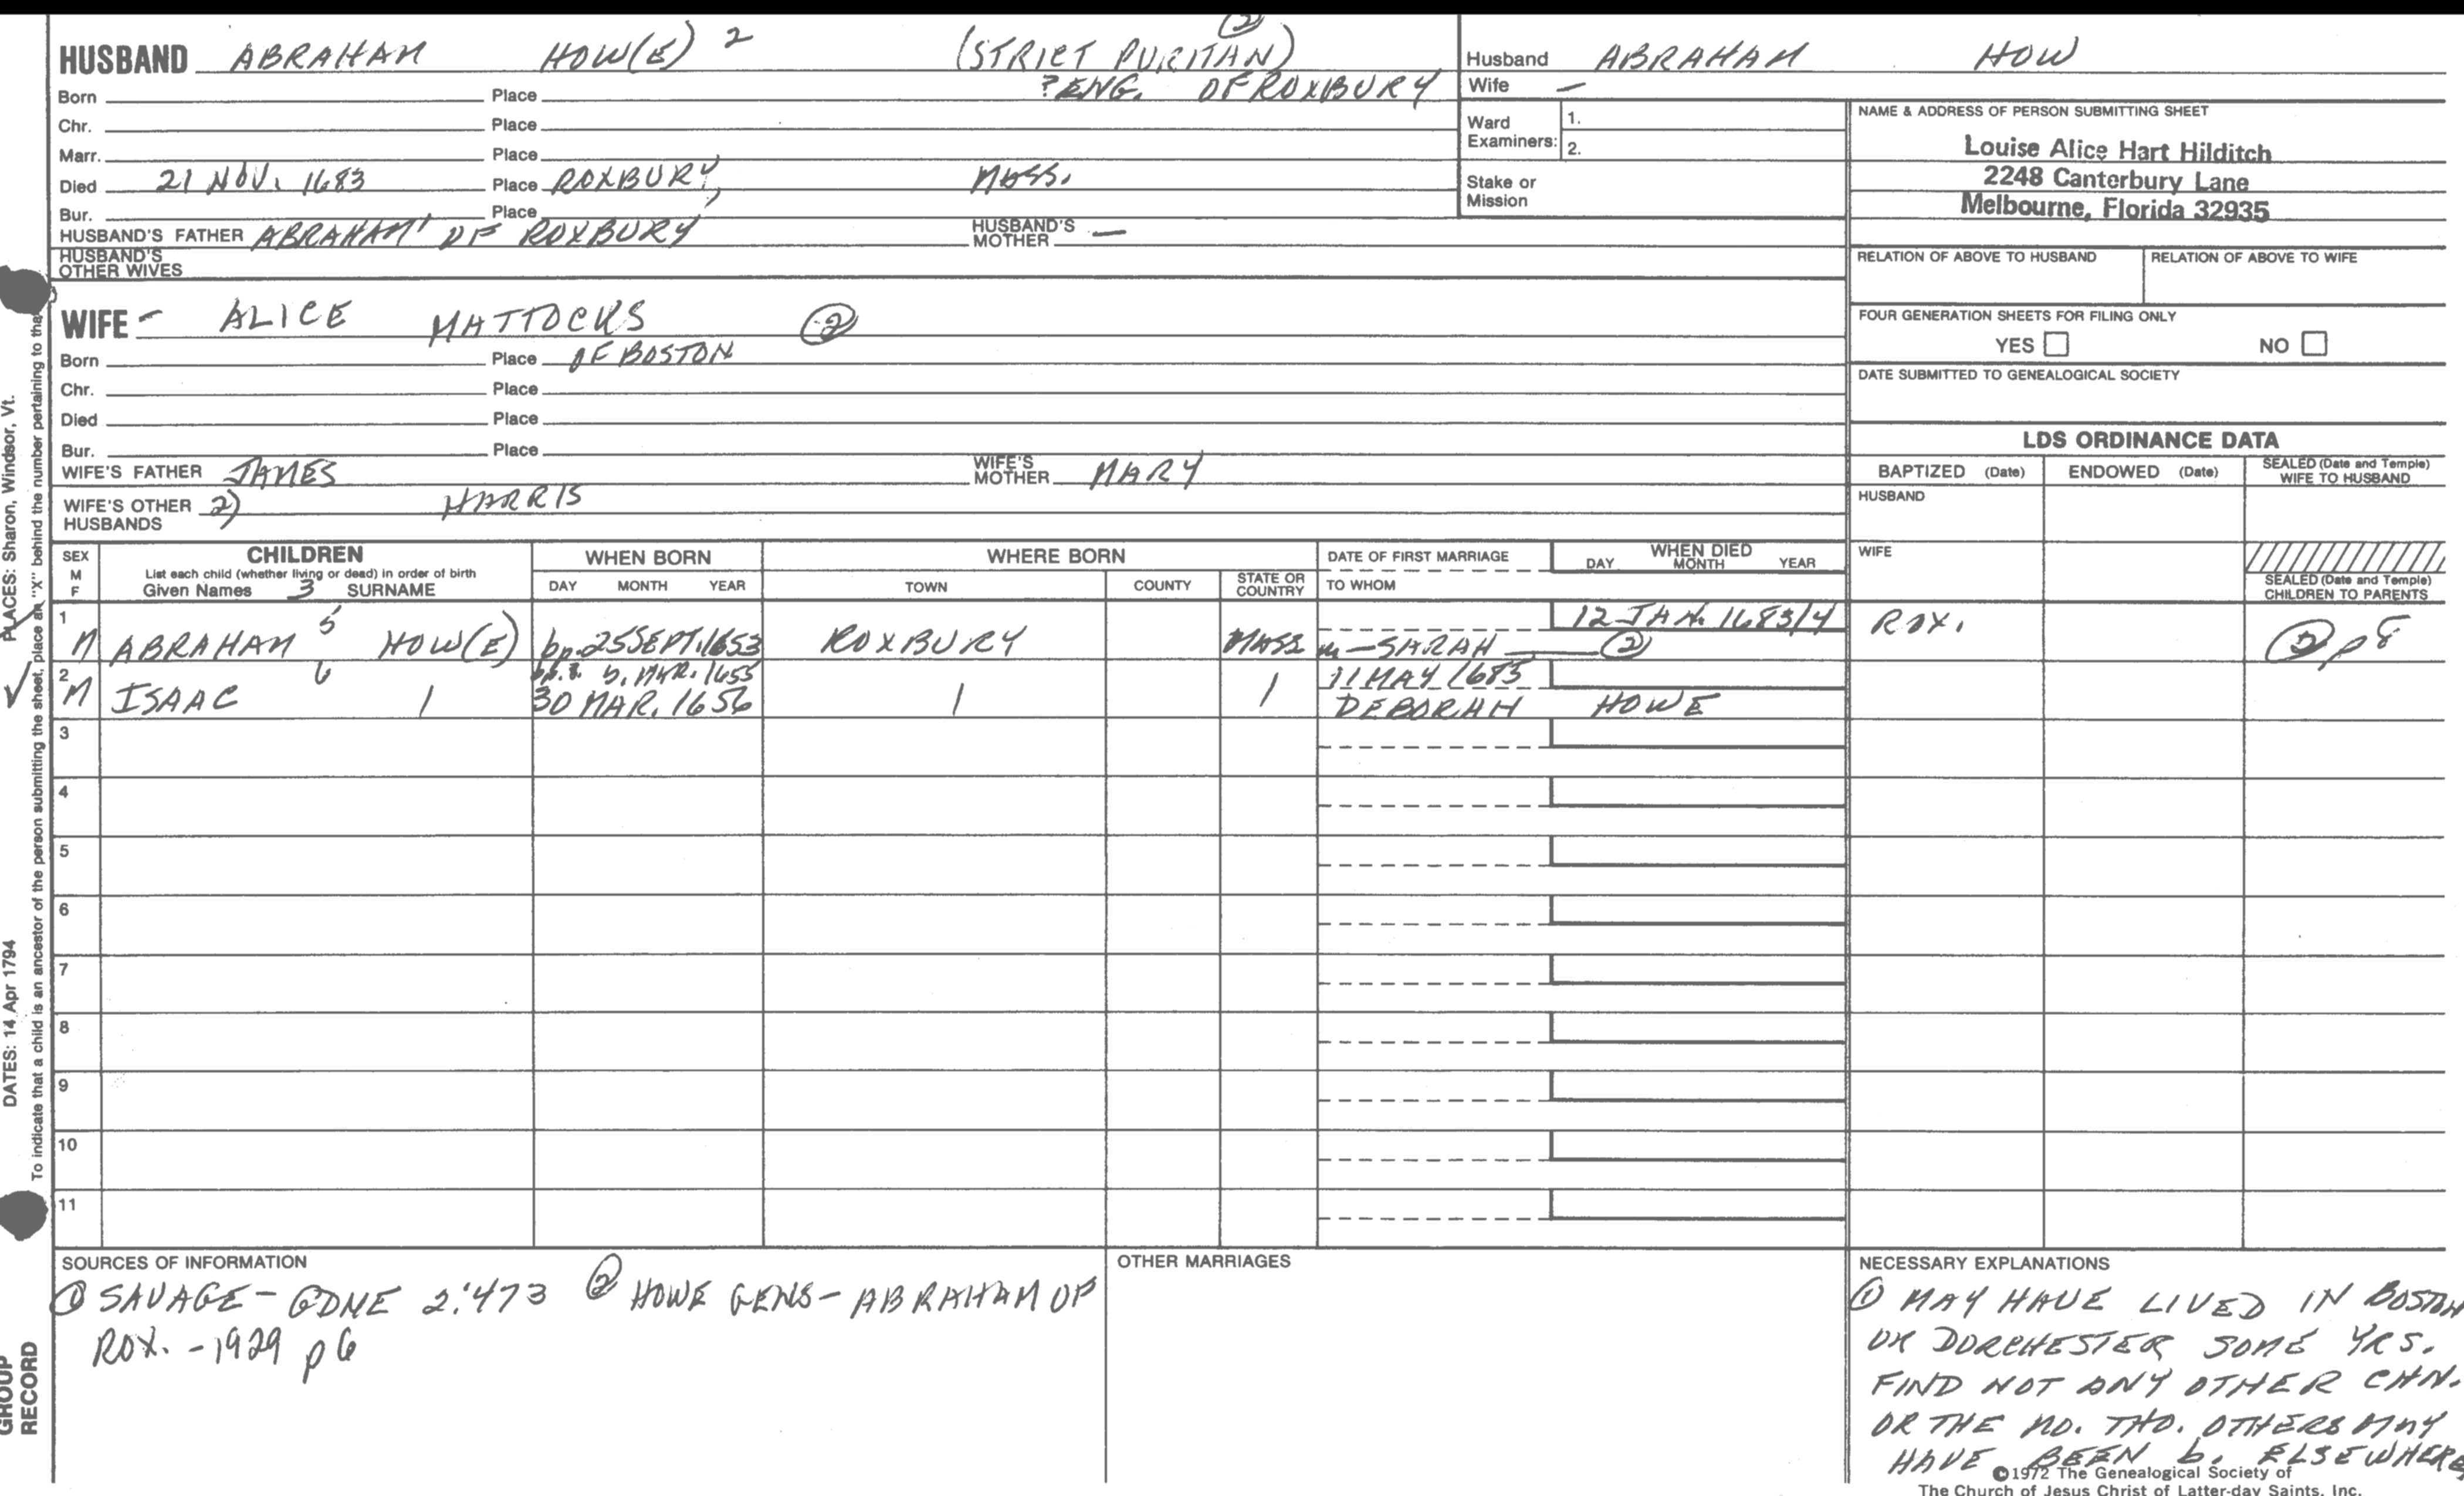 HUSBAND ABRAHAM HOW(E) 2 (STRICT PURITAN) (2)
Born Place ?ENG. OF ROXBURY
Chr. Place
Marr. Place
Died 21 NOV. 1683 Place ROXBURY, MASS.
Bur. Place
HUSBAND'S FATHER ABRAHAM 1 OF ROXBURY HUSBAND'S MOTHER —
HUSBAND'S OTHER WIVES
Husband ABRAHAM HOW
Wife —
Ward Examiners: 1.
2.
Stake or Mission
NAME & ADDRESS OF PERSON SUBMITTING SHEET
Louise Alice Hart Hilditch
2248 Canterbury Lane
Melbourne, Florida 32935
RELATION OF ABOVE TO HUSBAND RELATION OF ABOVE TO WIFE
FOUR GENERATION SHEETS FOR FILING ONLY
YES NO
DATE SUBMITTED TO GENEALOGICAL SOCIETY
WIFE - ALICE MATTOCKS (2)
Born Place OF BOSTON
Chr. Place
Died Place
Bur. Place
WIFE'S FATHER JAMES WIFE'S MOTHER MARY
WIFE'S OTHER HUSBANDS 2) HARRIS
LDS ORDINANCE DATA
BAPTIZED (Date) ENDOWED (Date) SEALED (Date and Temple) WIFE TO HUSBAND
HUSBAND
WIFE
SEALED (Date and Temple) CHILDREN TO PARENTS
SEX M F
CHILDREN
List each child (whether living or dead) in order of birth
Given Names 3 SURNAME
WHEN BORN
DAY MONTH YEAR
WHERE BORN
TOWN COUNTY STATE OR COUNTRY
DATE OF FIRST MARRIAGE
TO WHOM
WHEN DIED
DAY MONTH YEAR
1 12 JAN. 1683/4
M ABRAHAM 5 HOW(E) bp. 25 SEPT. 1653 ROXBURY MASS m - SARAH (2) ROX. (2) p 8
2 6 5. MAR. 1655 11 MAY 1685
M ISAAC 30 MAR. 1656 DEBORAH HOWE
3
4
5
6
7
8
9
10
11
SOURCES OF INFORMATION
① SAVAGE - GDNE 2:473 ② HOWE GENS - ABRAHAM OF
ROX. - 1929 p 6
OTHER MARRIAGES
NECESSARY EXPLANATIONS
① MAY HAVE LIVED IN BOSTON
OR DORCHESTER SOME YRS.
FIND NOT ANY OTHER CHN.
OR THE NO. THO. OTHERS MAY
HAVE BEEN b. ELSEWHERE
©1972 The Genealogical Society of
The Church of Jesus Christ of Latter-day Saints, Inc.
PLACES: Sharon, Windsor, Vt.
DATES: 14 Apr 1794
To indicate that a child is an ancestor of the person submitting the sheet, place an "X" behind the number pertaining to tha
GROUP
RECORD